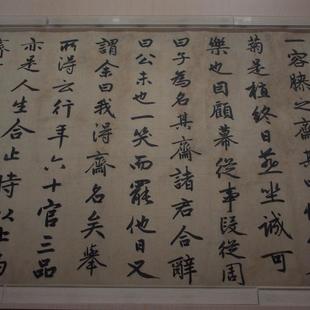 一容膝之齋其
菊是植終日燕坐誠可
樂也因顧幕從事段從周
曰子為名某齋諸君合辭
曰公未也一笑而罷他日又
謂余曰我得齋名矣舉
所得云行年六十官三品
亦是人生合止時以止為